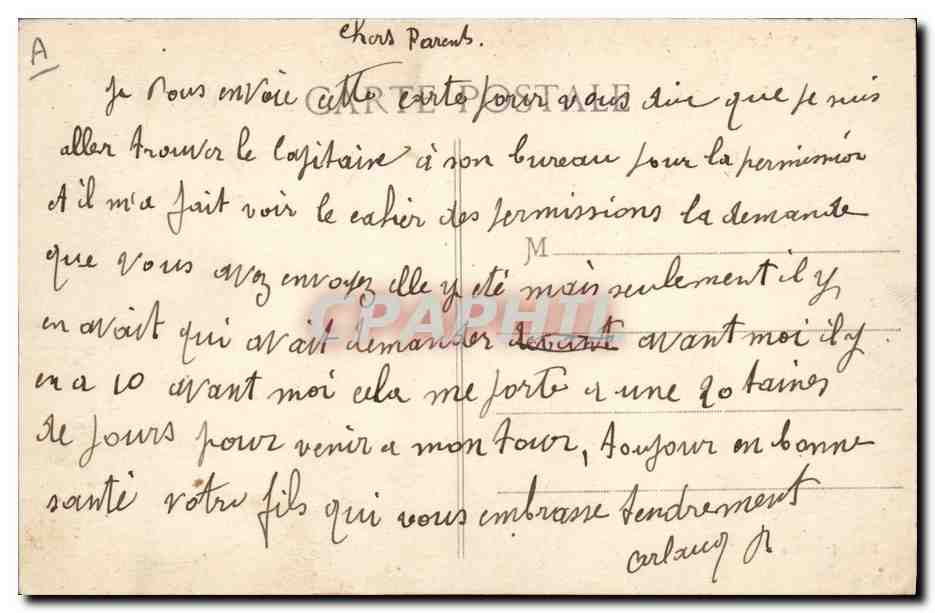 A
Chers Parents.
CARTE POSTALE
Je vous envoie cette carte pour vous dire que je suis
aller trouver le capitaine à son bureau pour la permission
et il m'a fait voir le cahier des permissions la demande
M
que vous avez envoyez elle y été mais seulement il y
CPAPHIL
en avait qui avait demander avant moi il y
en a 10 avant moi cela me porte a une 20 taines
de jours pour venir a mon tour, toujour en bonne
santé votre fils qui vous embrasse tendrement